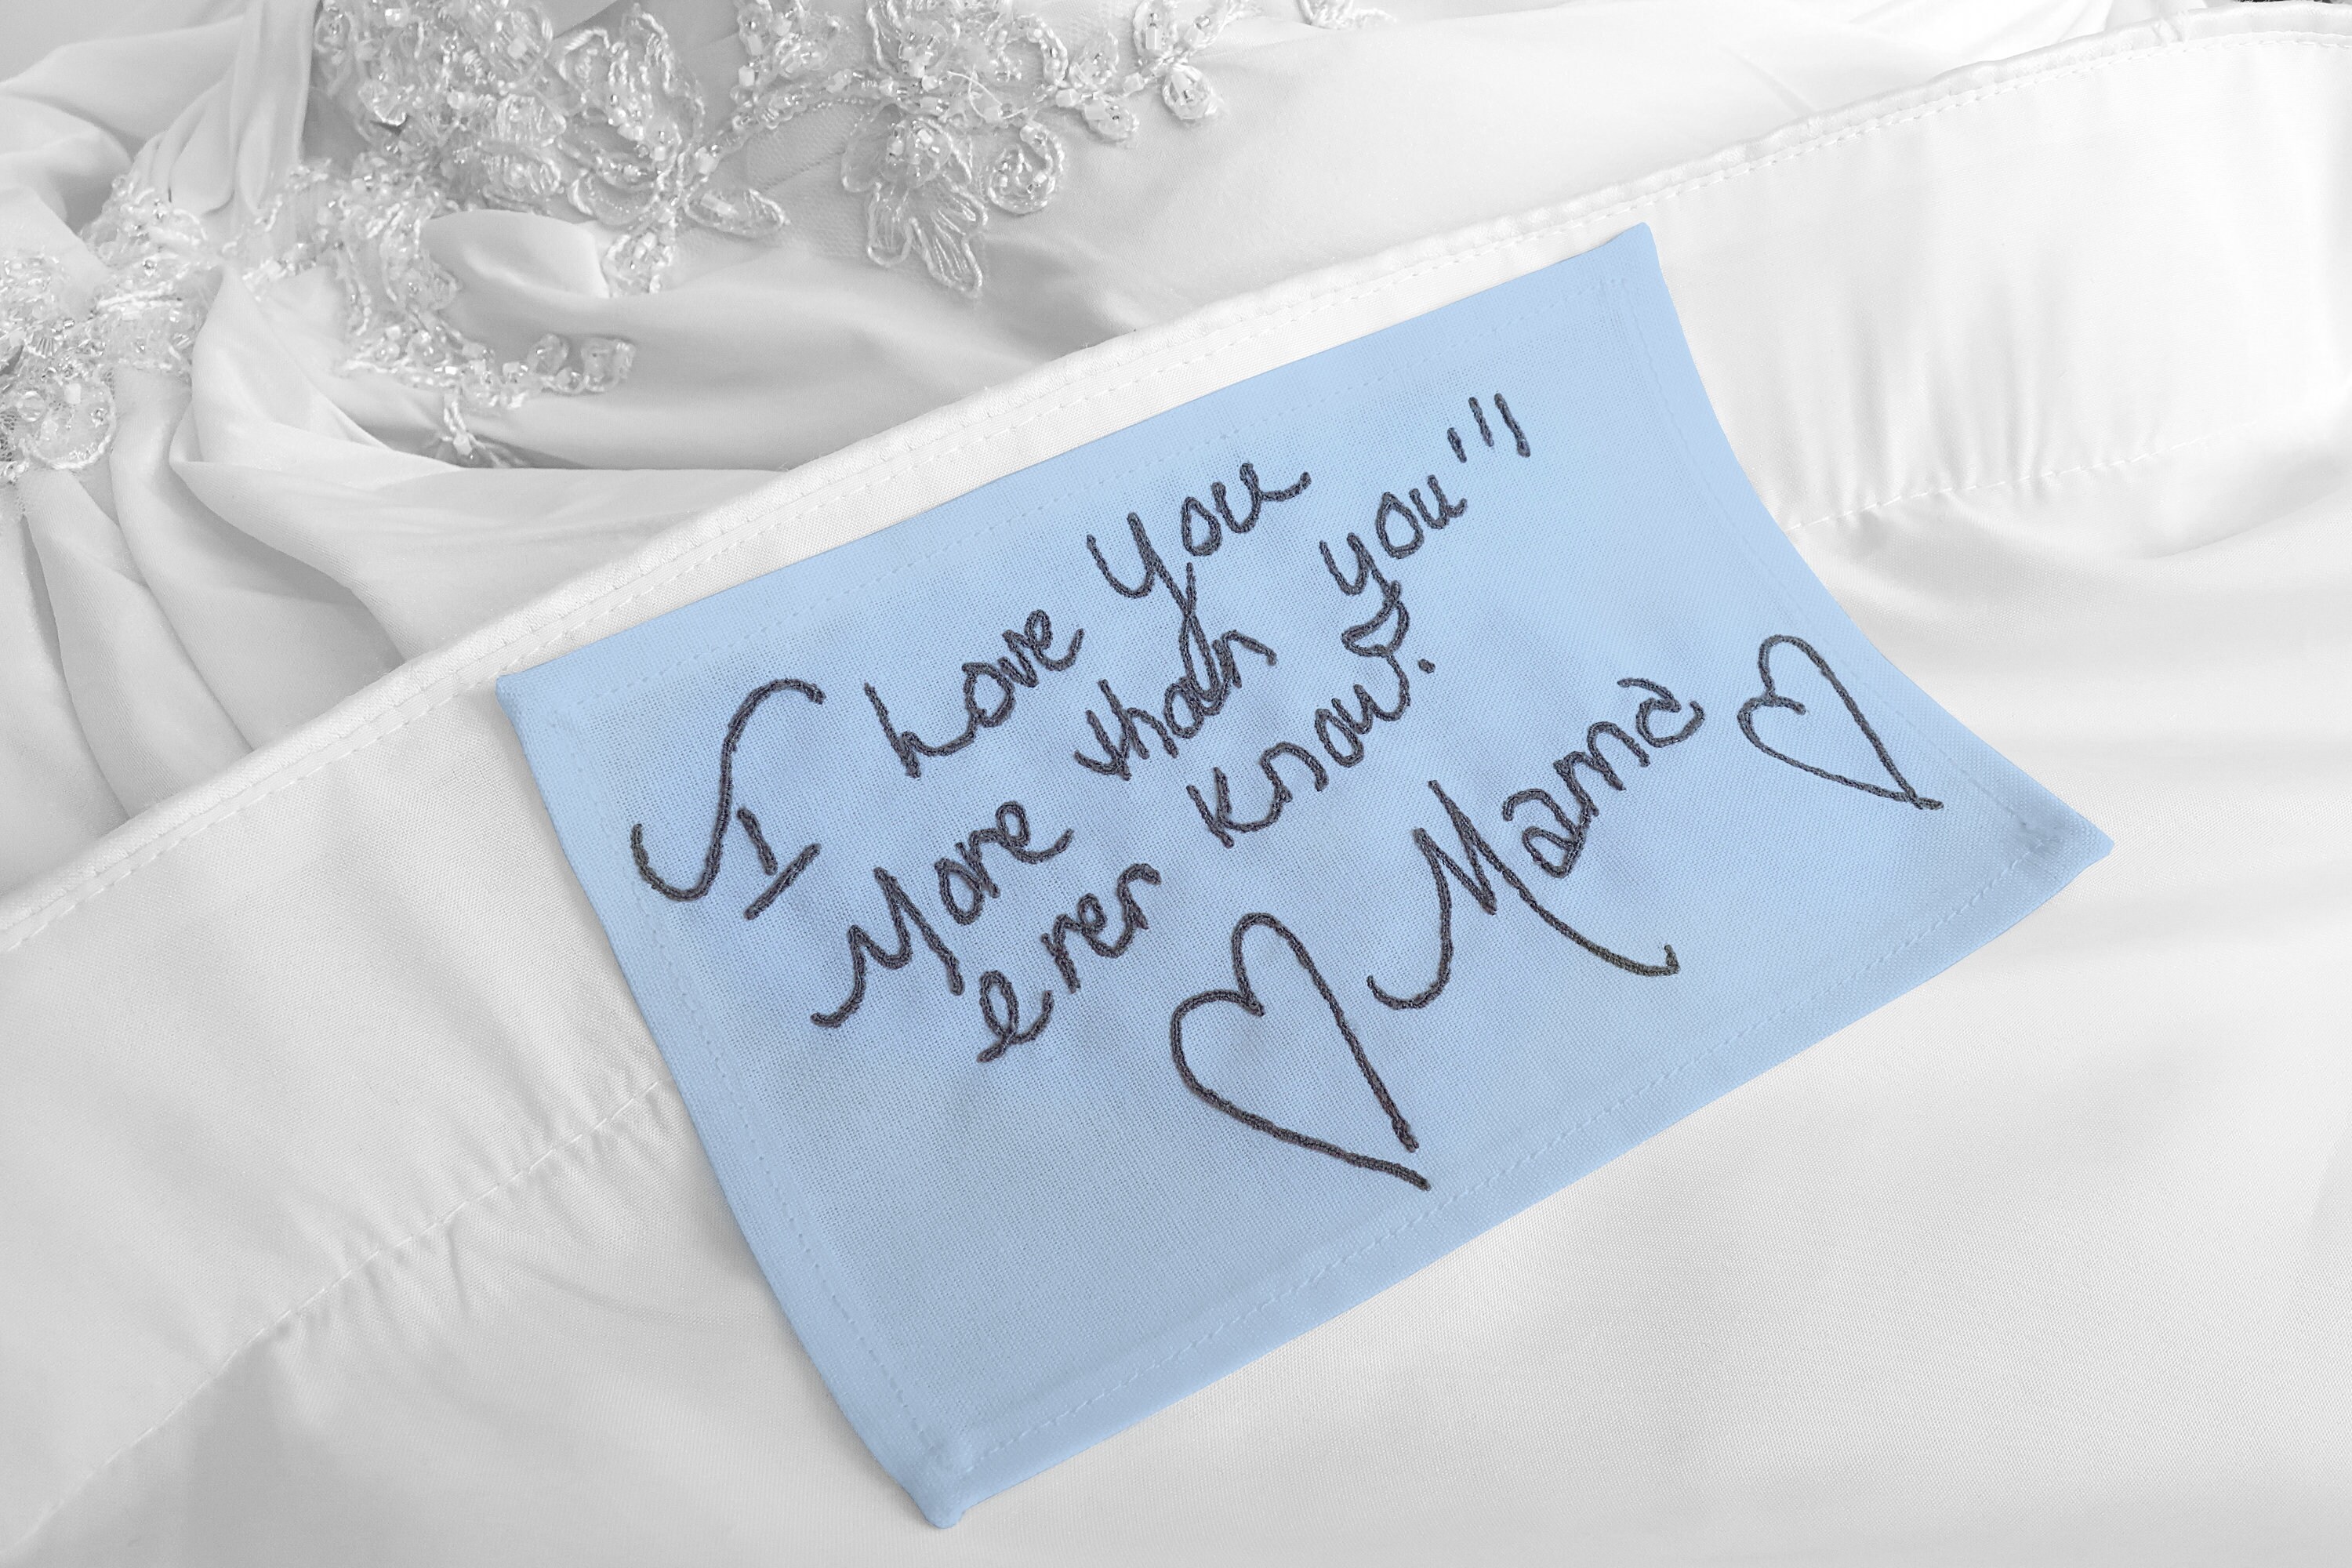 I Love you
More than you'll
ever know.
♡ Mama ♡